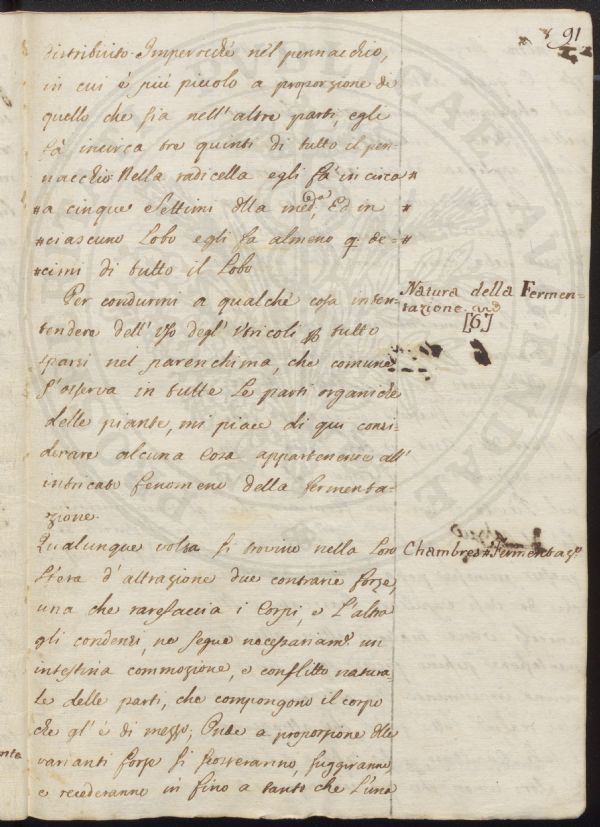 91
distribuito. Imperocché nel pennacchio,
in cui è più piccolo a proporzione di
quello che sia nell' altre parti, egli
fà incirca tre quinti di tutto il pen-
nacchio. Nella radicella egli fà incirca
a cinque settimi dlla med.a, Ed in
ciascuno Lobo egli fa almeno q. de-
cimi di tutto il Lobo
Per condurmi a qualche cosa inten-
tendere dell' uso degl' Utricoli p tutto
sparsi nel parenchima, che comune
s'osserva in tutte le parti organiche
delle piante, mi piace di qui consi-
derare alcuna cosa appartenente all'
intricato fenomeno della fermenta-
zione.
Natura della Fermen-
tazione
[6]
Qualunque volta si trovino nella Loro
sfera d'attrazione due contrarie forze,
una che rarefaccia i Corpi, e L'altra
gli condensi, ne segue necessariam.e un
intestina commozione, e conflitto natura-
le delle parti, che compongono il corpo
che gl' è di mezzo; Onde a proporzione dlle
varianti forze si scosteranno, fuggiranno,
e recederanno in fino a tanto che L'una
Chambres # Fermentaz.e